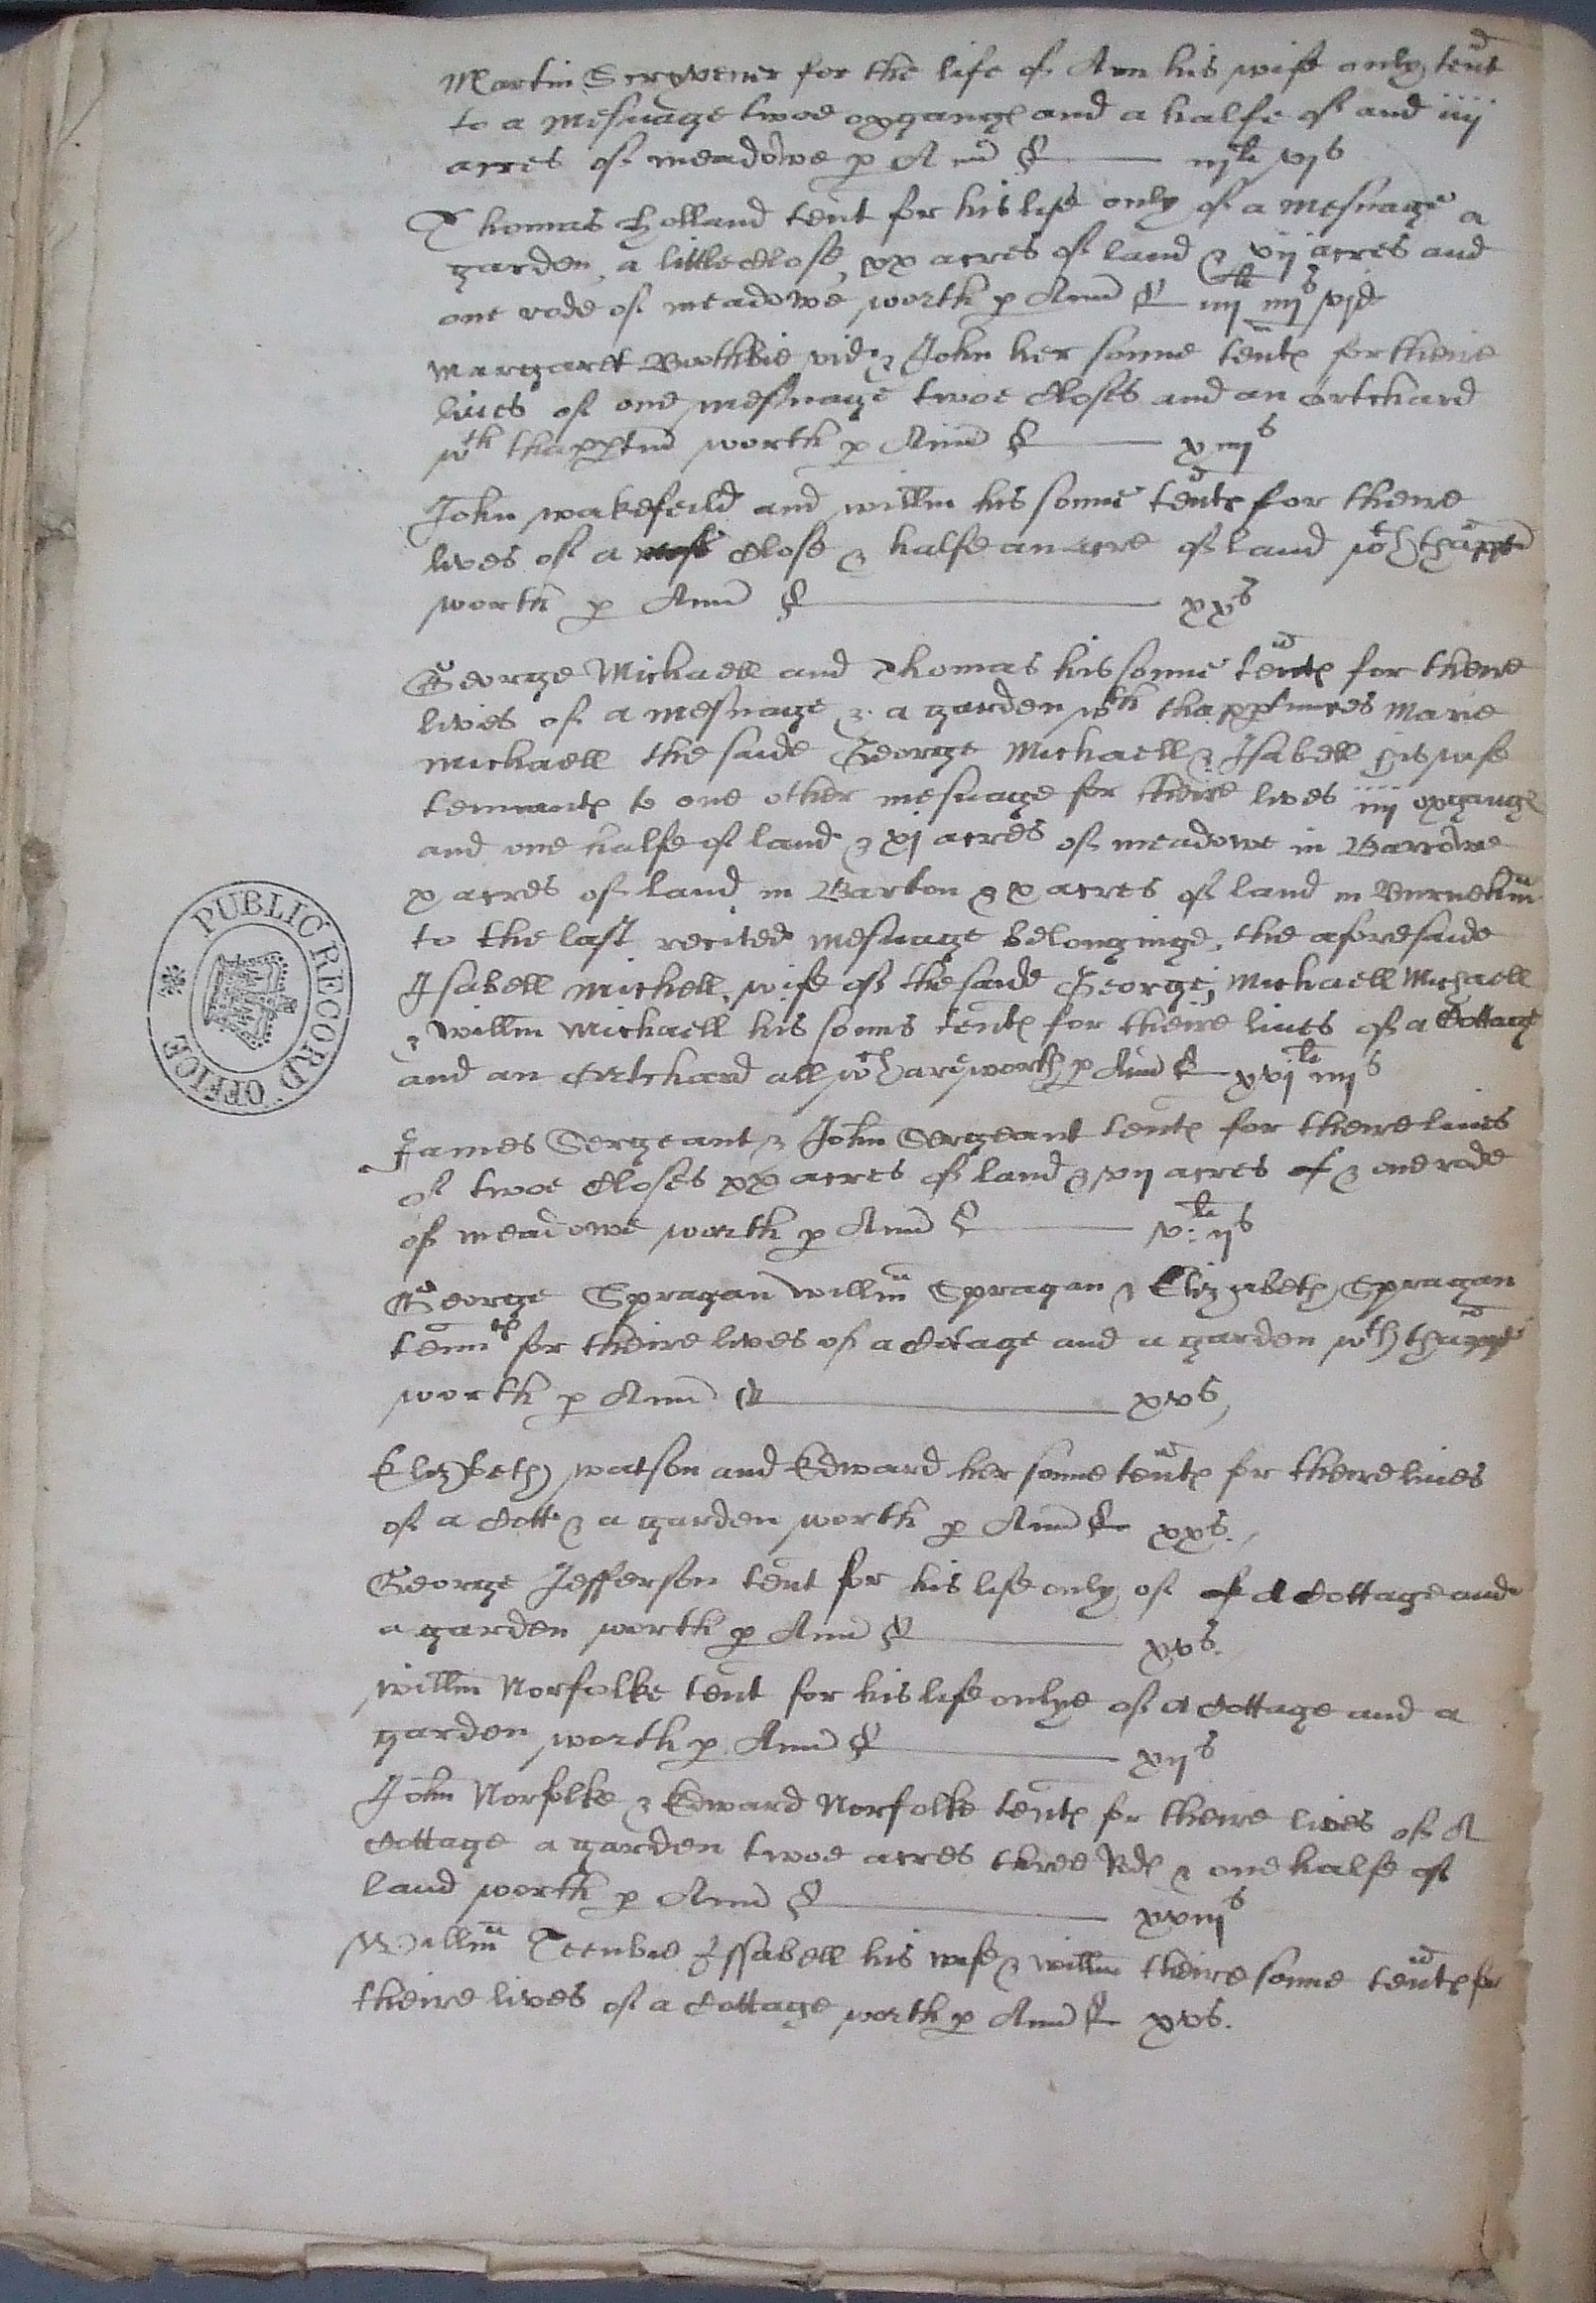 Martin Scryvener for the life of Ann his wife only tent
to a mesuage twoe oxgang and a halfe of and iiij
acres of meadowe p Ann iijli vjs
Thomas Holland tent for his life only of a mesuage a
garden a little close, xx acres of land & vij acres and
one rode of meadowe worth p Ann iiijli iiijs vjd
Margaret Boothbie vid & John her sonne tent for theire
lives of one mesuage twoe closes and an ortchard
wth thapptin worth p Ann xiiijs
John wakefeild and willm his sonne tente for theire
lives of a close & halfe an acre of land wth thappt
worth p Ann xxs
George Michaell and Thomas his sonne tent for theire
lives of a mesuage & a garden wth thapptinces Marie
Michaell the saide George Michaell & Isabell his wife
tennant to one other mesuage for theire lives iiij oxgang
and one halfe of land & xj acres of meadowe in Barrowe
x acres of land in Barton & x acres of land in Burneham
to the last recited mesuage belonginge, the aforesaide
Isabell michell, wife of the saide George, Michaell Michaell
& willm Michaell his sonns tent for theire lives of a Cottage
and an ortchard all wch are worth p Ann xvjli iiijs
James Sergeant & John Sergeant tent for theire lives
of twoe closes xx acres of land & vij acres of & one rode
of meadowe worth p Ann v:li ijs
George Spragan willm Spragan & Elizabeth Spragan
tennt for theire lives of a cotage and a garden wth thapp
worth p Ann xvs,
Elizbeth watson and Edward her sonne tent for theire lives
of a cott & a garden worth p Ann xxs.
George Jefferson tent for his life only of of A cottage and
a garden worth p Ann xvs.
willm Norfolke tent for his life onlye of A cottage and a
garden worth p Ann xijs
John Norfolke & Edward Norfolke tent for theire lives of A
cottage a garden twoe acres three Rd & one halfe of
land worth p Ann xxiijs
Willm Teenbie Issabell his wife & willm theire sonne tent for
theire lives of a cottage worth p Ann xvs.
PUBLIC RECORD OFFICE